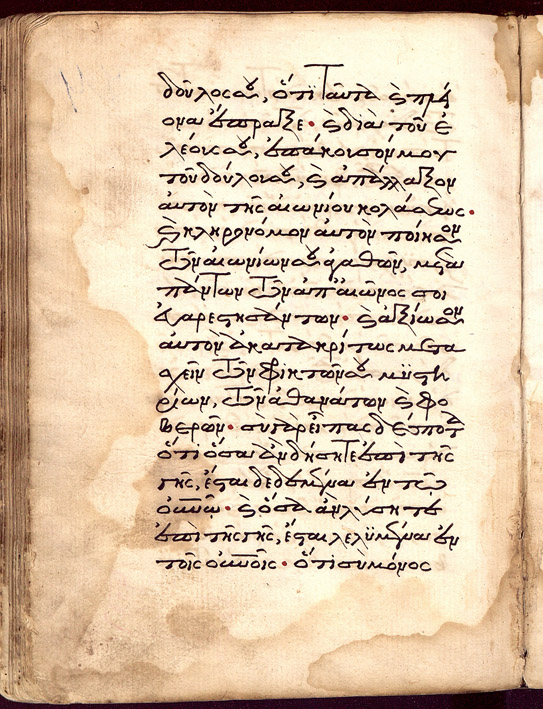 δοῦλος σου, ὅτι ταῦτα ἐς πρᾶ
ἔπραξε· ἐ διὰ τοῦ ἐ
λέους σου, ἐπάκουσόν μου
τοῦ δούλου σου, ἐ ἀπάλλαξον
αὐτὸν τῆς αἰωνίου κολάσεως·
ἐ κληρονόμον αὐτὸν ποίησον
τῶν αἰωνίων σου ἀγαθῶν, μετὰ
πάντων τῶν ἀπ' αἰῶνος σοι
εὐαρεστησάντων· ἐ ἀξίωσον
αὐτὸν ἀκατακρίτως μετα
σχεῖν τῶν φρικτῶν σου μυστη
ρίων, τῶν ἀθανάτων ἐ φο
βερῶν· σὺ γὰρ εἶπας δέσποτα
ὅτι ὅσα ἂν δήσητε ἐπὶ τῆς
γῆς, ἔσται δεδεμένα ἐν τῷ
οὐνῷ· ἐ ὅσα ἂν λύσητε
ἐπὶ τῆς γῆς, ἔσται λελυμένα ἐν
τοῖς οὐνοῖς· ὅτι σὺ μόνος